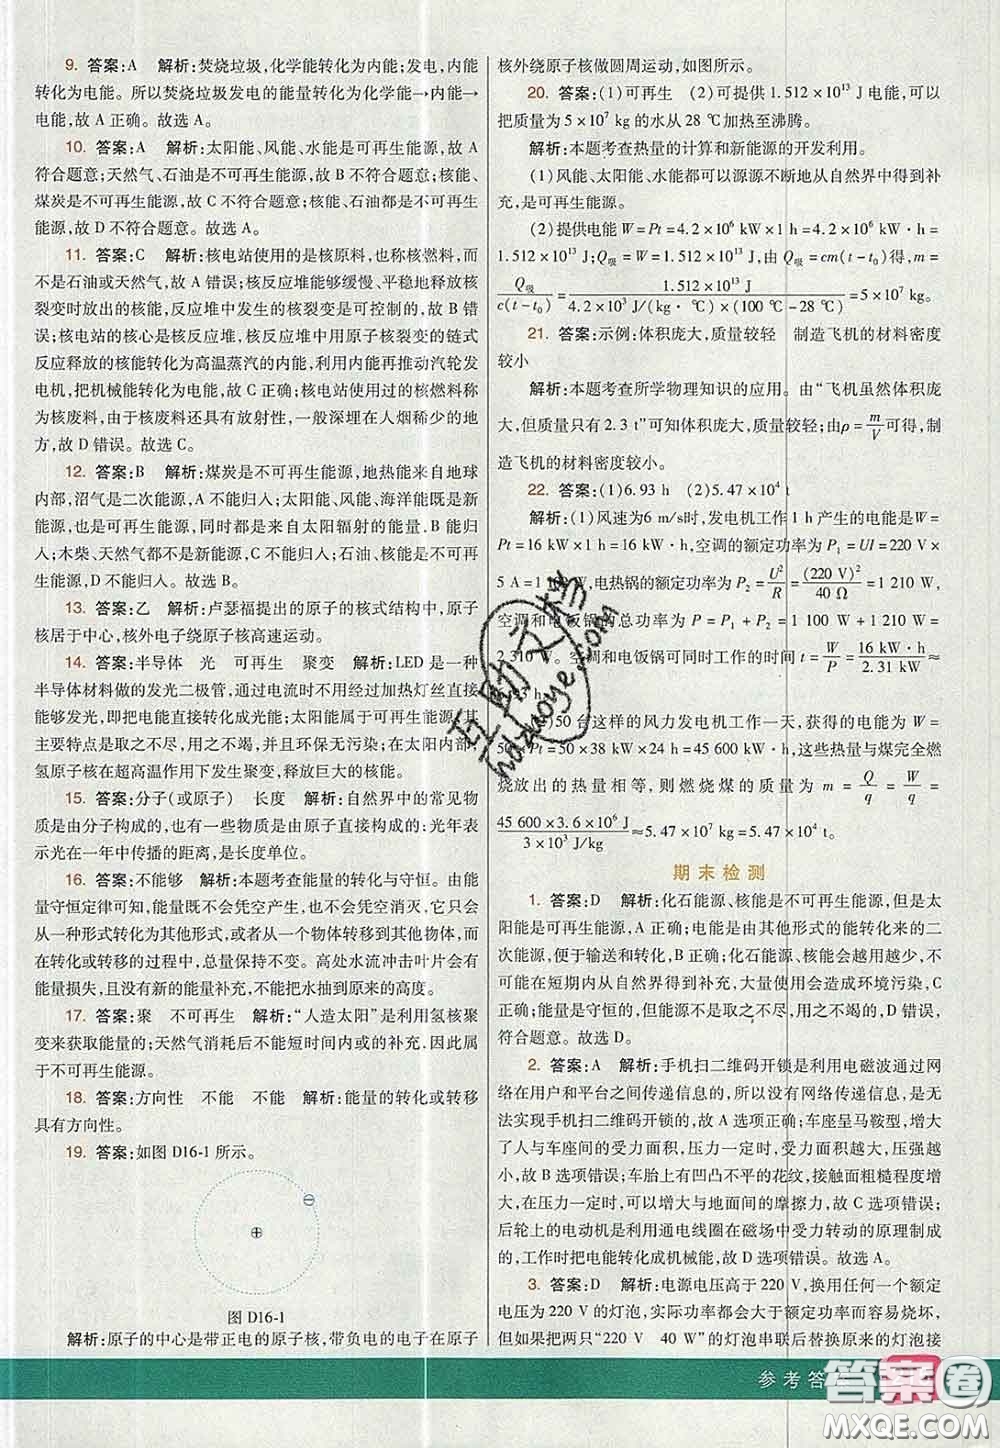 9. 答案:A 解析:焚烧垃圾,化学能转化为内能;发电,内能
转化为电能。所以焚烧垃圾发电的能量转化为化学能→内能→
电能,故 A 正确。故选 A。
10. 答案:A 解析:太阳能、风能、水能是可再生能源,故 A
符合题意;天然气、石油是不可再生能源,故 B 不符合题意;核能、
煤炭是不可再生能源,故 C 不符合题意;核能、石油都是不可再生
能源,故 D 不符合题意。故选 A。
11. 答案:C 解析:核电站使用的是核原料,也称核燃料,而
不是石油或天然气,故 A 错误;核反应堆能够缓慢、平稳地释放核
裂变时放出的核能,反应堆中发生的核裂变是可控制的,故 B 错
误;核电站的核心是核反应堆,在反应堆中用原子核裂变的链式
反应释放的核能转化为高温蒸汽的内能,利用内能再推动汽轮发
电机,把机械能转化为电能,故 C 正确;核电站使用过的核燃料称
为核废料,由于核废料还具有放射性,一般深埋在人烟稀少的地
方,故 D 错误。故选 C。
12. 答案:B 解析:煤炭是不可再生能源,地热能来自地球
内部,沼气是二次能源,A 不能归入;太阳能、风能、海洋能既是新
能源,也是可再生能源,同时都是来自太阳辐射的能量,B 能归
入;木柴、天然气都不是新能源,C 不能归入;石油、核能是不可再
生能源,D 不能归入。故选 B。
13. 答案:乙 解析:卢瑟福提出的原子的核式结构中,原子
核居于中心,核外电子绕原子核高速运动。
14. 答案:半导体 光 可再生 聚变 解析:LED 是一种
半导体材料做的发光二极管,通过电流时不用经过加热灯丝直接
发光,即把电能直接转化成光能;太阳能属于可再生能源,其
主要特点是取之不尽,用之不竭,并且环保无污染;在太阳内部,
氢原子核在超高温作用下发生聚变,释放巨大的核能。
15. 答案:分子(或原子) 长度 解析:自然界中的常见物
质是由分子构成的,也有一些物质是由原子直接构成的;光年表
示光在一年中传播的距离,是长度单位。
16. 答案:不能够 解析:本题考查能量的转化与守恒。由能
量守恒定律可知,能量不会凭空产生,也不会凭空消灭,它只能
从一种形式转化为其他形式,或者从一个物体转移到其他物体,
在转化或转移的过程中,总量保持不变。高处水流冲击叶片会有
能量损失,且没有新的能量补充,不能把水抽到原来的高度。
17. 答案:聚 不可再生 解析:“人造太阳”是利用氢核聚
变来获取能量的;天然气消耗后不能短时间内或的补充,因此属
于不可再生能源。
18. 答案:方向性 不能 不能 解析:能量的转化或转移
具有方向性。
19. 答案:如图 D16-1 所示。
图 D16-1
解析:原子的中心是带正电的原子核,带负电的电子在原子
核外绕原子核做圆周运动,如图所示。
20. 答案:(1)可再生 (2)可提供 1.512×10¹³ J 电能,可以
把质量为 5×10⁷ kg 的水从 28 ℃加热至沸腾。
解析:本题考查热量的计算和新能源的开发利用。
(1)风能、太阳能、水能都可以源源不断地从自然界中得到补
充,是可再生能源。
(2)提供电能 W=Pt=4.2×10⁶ kW×1 h=4.2×10⁶ kW·h=
1.512×10¹³ J;Q吸=W=1.512×10¹³ J,由 Q吸=cm(t-t₀)得,m=
Q吸/c(t-t₀)=1.512×10¹³ J/4.2×10³ J/(kg·℃)×(100 ℃-28 ℃)=5×10⁷ kg。
21. 答案:示例:体积庞大,质量较轻 制造飞机的材料密度
较小
解析:本题考查所学物理知识的应用。由“飞机虽然体积庞
大,但质量只有 2.3 t”可知体积庞大,质量较轻;由ρ=m/V可得,制
造飞机的材料密度较小。
22. 答案:(1)6.93 h (2)5.47×10⁴ t
解析:(1)风速为6 m/s时,发电机工作 1 h 产生的电能是 W=
Pt=16 kW×1 h=16 kW·h,空调的额定功率为 P₁=UI=220 V×
5 A=1 100 W,电热锅的额定功率为 P₂=U²/R=(220 V)²/40 Ω=1 210 W,
空调和电饭锅的总功率为 P=P₁+P₂=1 100 W+1 210 W=
2 310 W。空调和电饭锅可同时工作的时间 t=W/P=16 kW·h/2.31 kW≈
6.93 h。
(2)50 台这样的风力发电机工作一天,获得的电能为 W=
50×Pt=50×38 kW×24 h=45 600 kW·h,这些热量与煤完全燃
烧放出的热量相等,则燃烧煤的质量为 m=Q/q=W/q=
45 600×3.6×10⁶ J/3×10³ J/kg≈5.47×10⁷ kg=5.47×10⁴ t。
期末检测
1. 答案:D 解析:化石能源、核能是不可再生能源,但是太
阳能是可再生能源,A 正确;电能是由其他形式的能转化来的二
次能源,便于输送和转化,B 正确;化石能源、核能会越用越少,不
可能在短期内从自然界得到补充,大量使用会造成环境污染,C
正确;能量是守恒的,但能源不是取之不尽,用之不竭的,D 错误,
符合题意。故选 D。
2. 答案:A 解析:手机扫二维码开锁是利用电磁波通过网
络在用户和平台之间传递信息的,所以没有网络传递信息,是无
法实现手机扫二维码开锁的,故 A 选项正确;车座呈马鞍型,增
大人与车座间的受力面积,压力一定时,增大受力面积可减小压
强,故 B 选项错误;车胎上有凹凸不平的花纹,接触面粗糙程度增
大,在压力一定时,可以增大与地面间的摩擦力,故 C 选项错误;
后轮上的电动机是利用通电线圈在磁场中受力转动的原理制成
的,工作时把电能转化成机械能,故 D 选项错误。故选 A。
3. 答案:D 解析:电源电压高于 220 V,换用任何一个额定
电压为 220 V 的灯泡,实际功率都会大于额定功率而容易烧坏,
但如果把两只“220 V 40 W”的灯泡串联后替换原来的灯泡接
参考答
答案圈
MXQE.COM
互助文档
hdzuoye.com